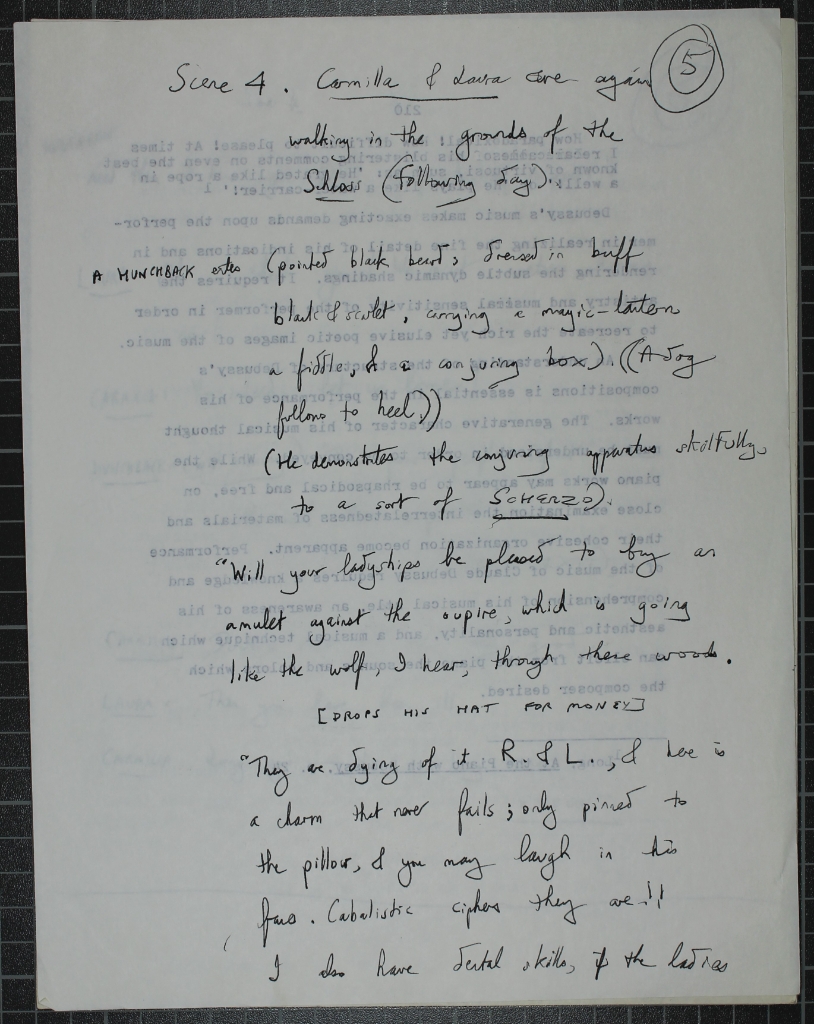 5
Scene 4. Carmilla & Laura are again
walking in the grounds of the
Schloss (following day).
A HUNCHBACK enters (pointed black beard; dressed in buff
black & scarlet, carrying a magic-lantern
a fiddle, & a conjuring box). ((A dog
follows to heel.))
(He demonstrates the conjuring apparatus skilfully,
to a sort of SCHERZO).
"Will your ladyships be pleased to buy an
amulet against the oupire, which is going
like the wolf, I hear, through these woods.
[DROPS HIS HAT FOR MONEY]
"They are dying of it R. & L., & here is
a charm that never fails; only pinned to
the pillow, & you may laugh in his
face. Cabalistic ciphers they are!!
I also have dental skills, if the ladies